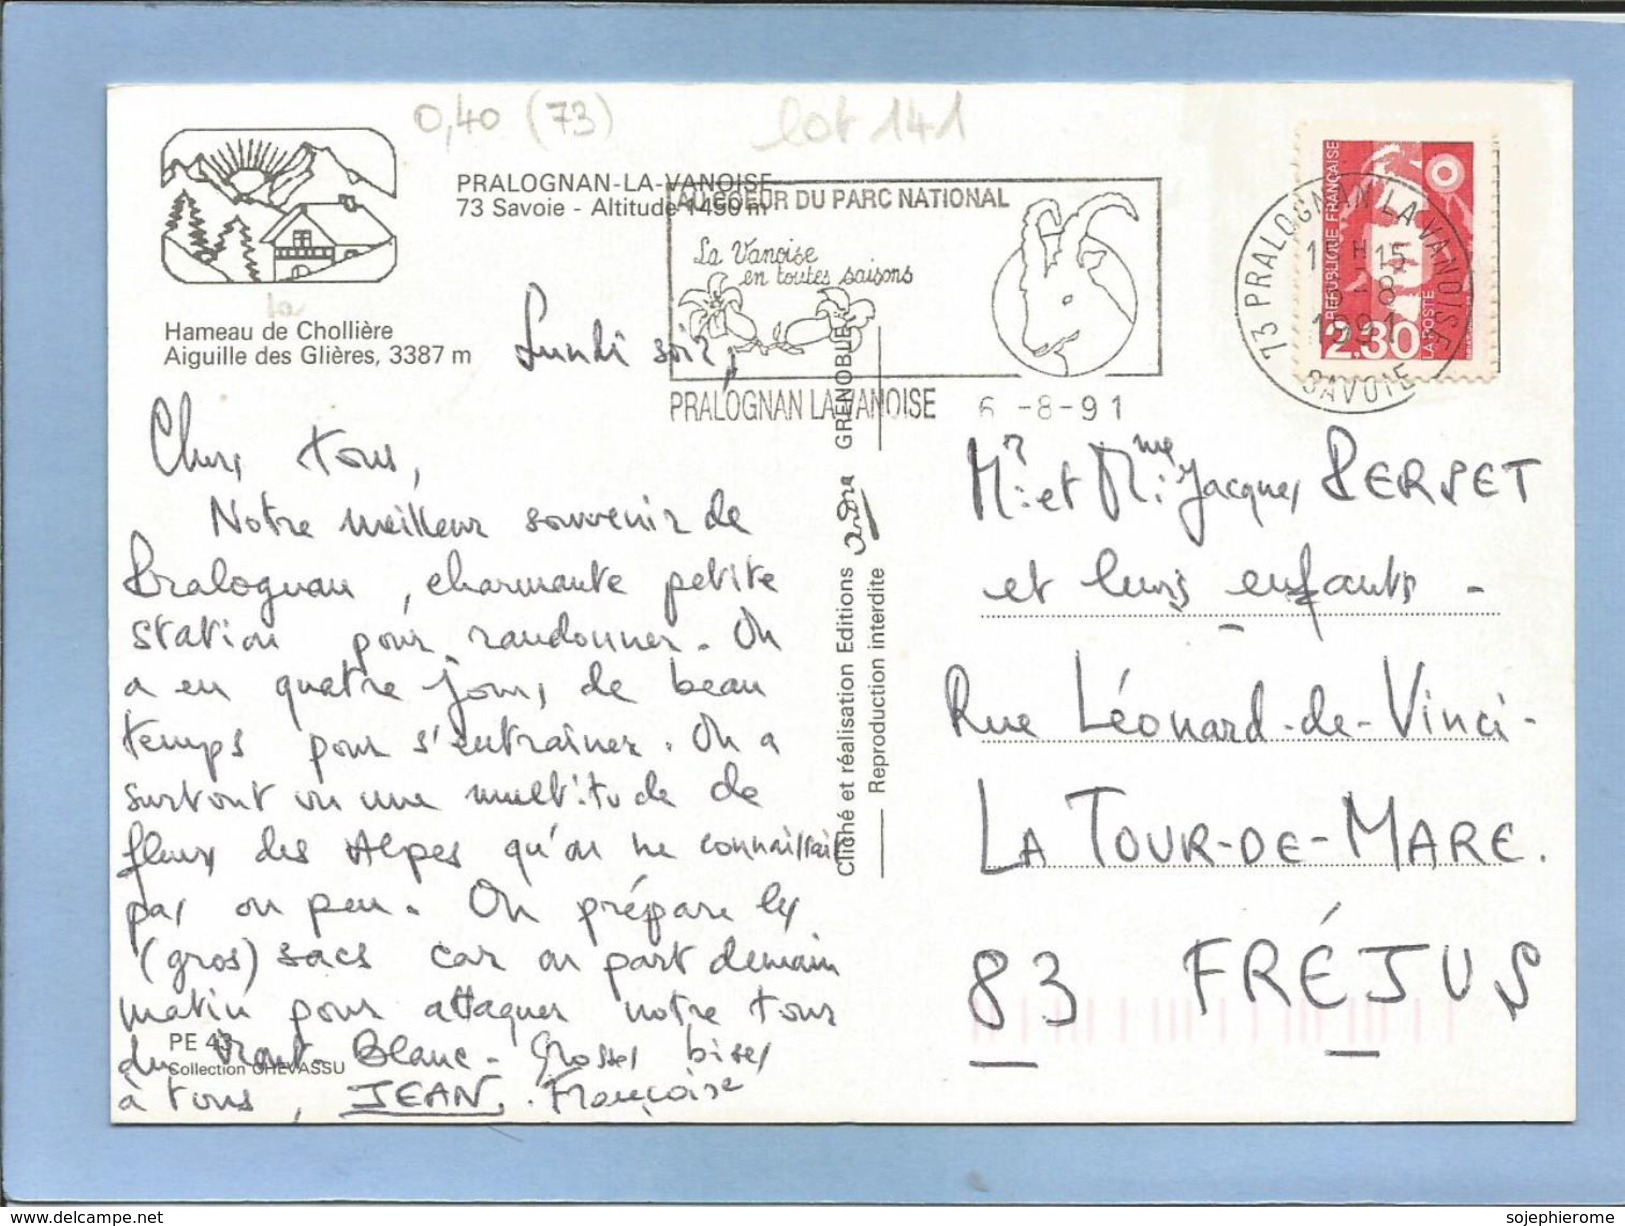 0,40 (73)
lot 141
PRALOGNAN-LA-VANOISE
73 Savoie - Altitude 1490 m
AU COEUR DU PARC NATIONAL
La Vanoise
en toutes saisons
PRALOGNAN LA VANOISE 6 -8-91
73 PRALOGNAN LA VANOISE
15 H 15
6 - 8
1991
SAVOIE
REPUBLIQUE FRANÇAISE
2.30
LA POSTE
la
Hameau de Chollière
Aiguille des Glières, 3387 m
Lundi soir,
Chers tous,
Notre meilleur souvenir de
Pralognan, charmante petite
station pour randonner. On
a eu quatre jours de beau
temps pour s'entraîner. On a
surtout vu une multitude de
fleurs des Alpes qu'on ne connaissait
pas ou peu. On prépare les
(gros) sacs car on part demain
matin pour attaquer notre tour
du Mont-Blanc - Grosses bises
à tous, JEAN. Françoise
PE 43
Collection CHEVASSU
Cliché et réalisation Editions André GRENOBLE
Reproduction interdite
Mr. et Mme Jacques PERSET
et leurs enfants -
Rue Léonard-de-Vinci -
LA TOUR-DE-MARE.
83 FRÉJUS
© www.delcampe.net
sojephierome